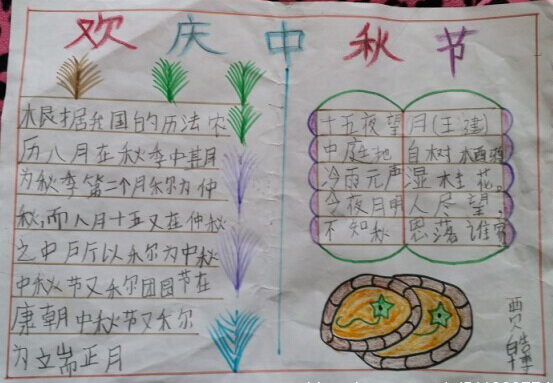 欢庆中秋节
根据我国的历法农
历八月在秋季中其月
为秋季第二个月称为仲
秋,而八月十五又在仲秋
之中所以称为中秋
中秋节又称团圆节在
唐朝中秋节又称
为端正月
十五夜望月(王建)
中庭地白树栖鸦
冷雨元声湿桂花。
今夜月明人尽望,
不知秋思落谁家
贾